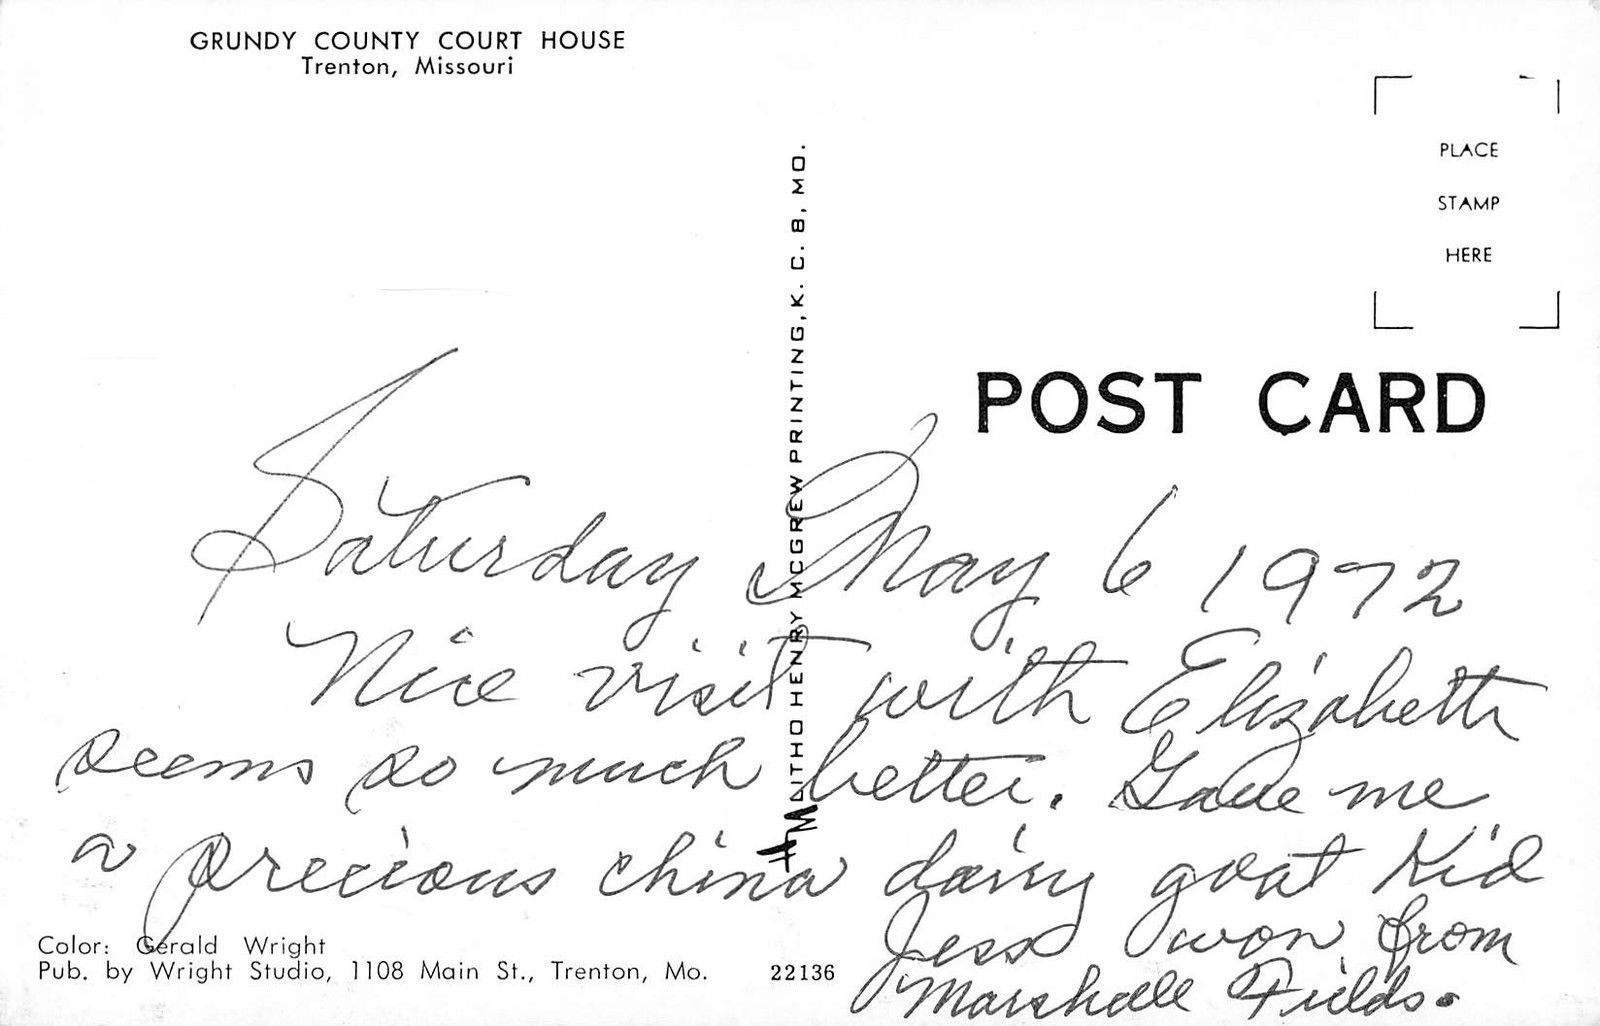 GRUNDY COUNTY COURT HOUSE
Trenton, Missouri
PLACE
STAMP
HERE
POST CARD
LITHO HENRY MCGREW PRINTING, K. C. 8, MO.
Saturday May 6 1972
Nice visit with Elizabeth
seems so much better. Gave me
a precious china dairy goat Kid
Jess won from
Marshall Fields.
Color: Gerald Wright
Pub. by Wright Studio, 1108 Main St., Trenton, Mo.
22136